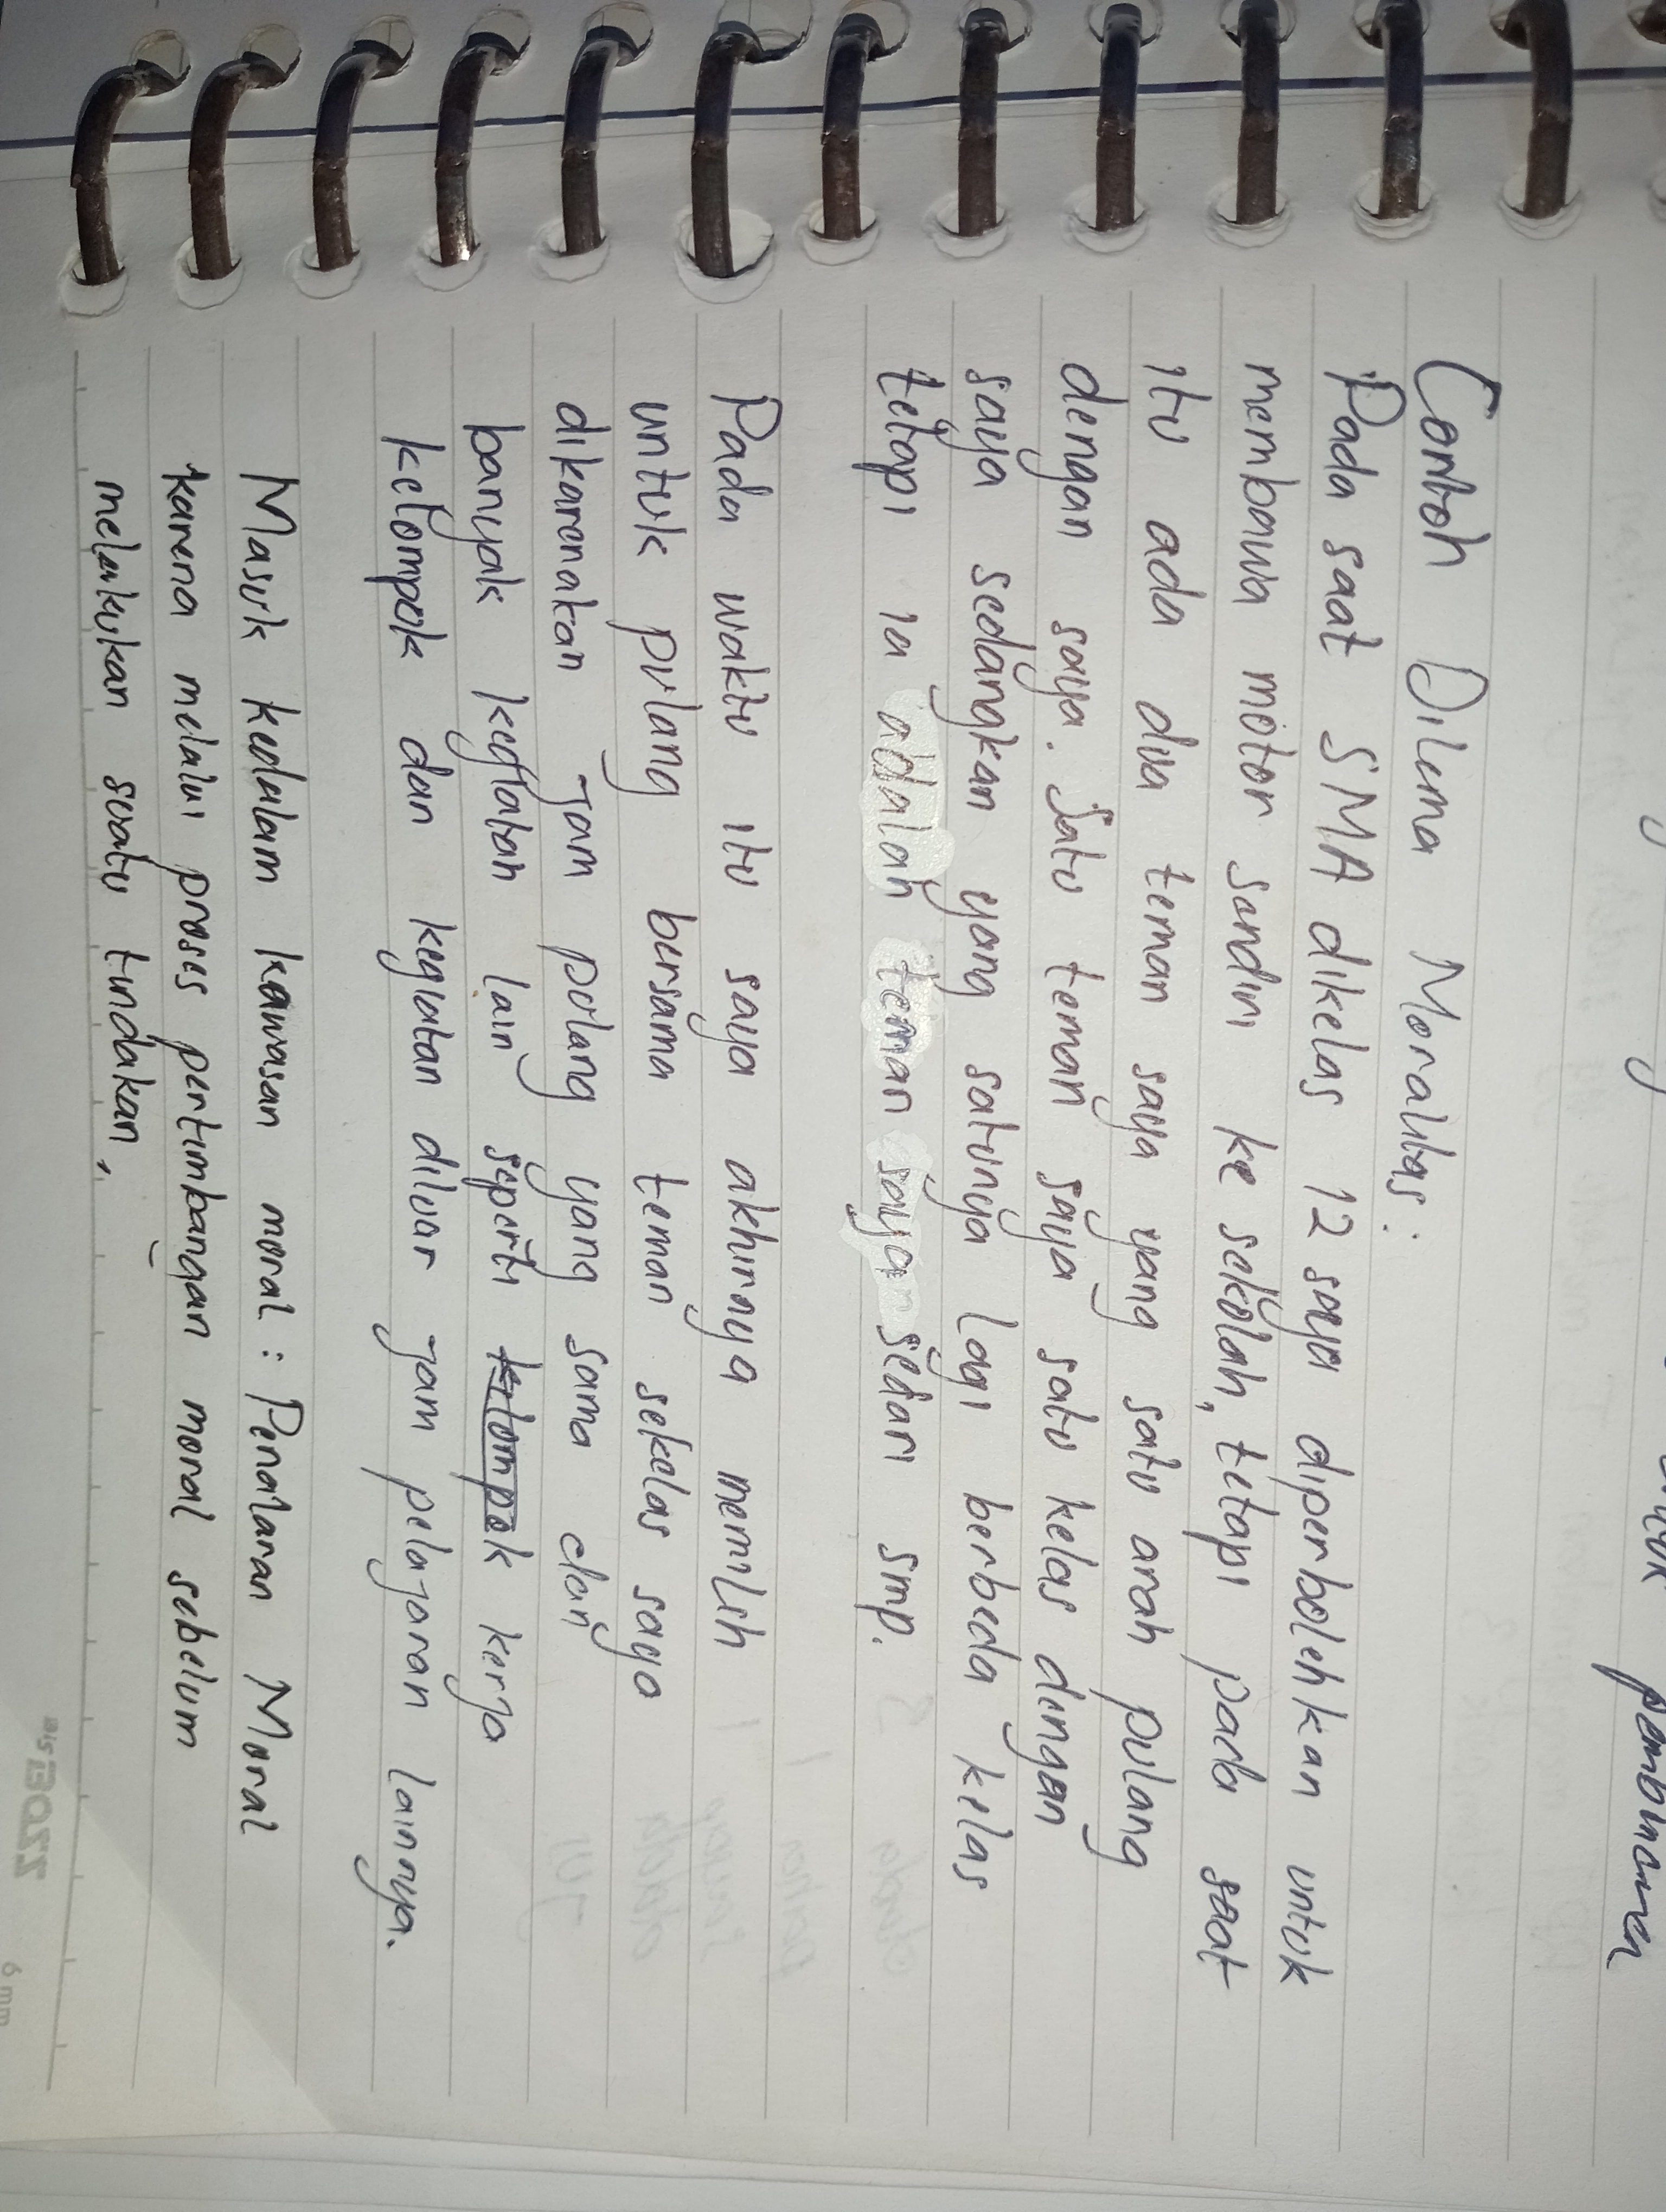 Contoh Dilema Moralitas :
Pada saat SMA dikelas 12 saya diperbolehkan untuk
membawa motor sendiri ke sekolah, tetapi pada saat
itu ada dua teman saya yang satu arah pulang
dengan saya. Satu teman saya satu kelas dengan
saya sedangkan yang satunya lagi berbeda kelas
tetapi ia adalah teman saya sedari smp.
Pada waktu itu saya akhirnya memilih
untuk pulang bersama teman sekelas saya
dikarenakan jam pulang yang sama dan
banyak kegiatan lain seperti kelompok kerja
kelompok dan kegiatan diluar jam pelajaran lainnya.
Masuk kedalam kawasan moral : Penalaran Moral
karena melalui proses pertimbangan moral sebelum
melakukan suatu tindakan,
6 mm